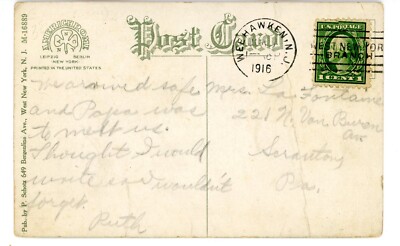 Pub. by P. Schorz 649 Bergenline Ave., West New York, N. J. M-16889
LEIPZIG BERLIN
NEW YORK
PRINTED IN THE UNITED STATES
Post Card
WEEHAWKEN, N.J.
1916
WEST NEW YORK
BRANCH
1 CENT 1
We arrived safe
and Papa was
to meet us.
Thought I would
write so I wouldn't
forget.
Ruth
Mrs. La Fontaine
221 N. Van Buren
Ave
Scranton
Pa.